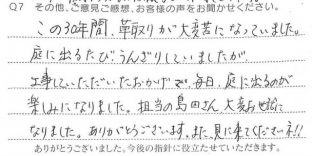 Q7 その他、ご意見ご感想、お客様の声をお聞かせください。
この30年間、草取りが大変苦になっていました。
庭に出るたびうんざりしていましたが、
工事していただいたおかげで、毎日、庭に出るのが
楽しみになりました。担当の島田さん 大変お世話に
なりました。ありがとうございます。また、見に来てくださいネ!!
ありがとうございました。今後の指針に役立たせていただきます。